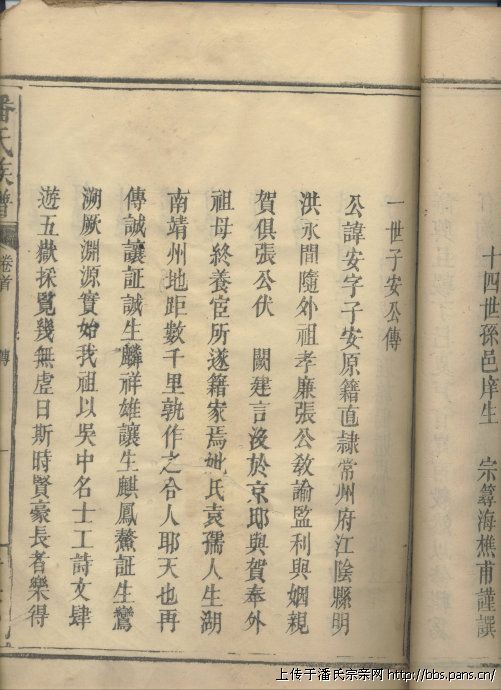 十四世孫邑庠生 宗尋海樵甫謹撰
一世子安公傳
公諱安字子安原籍直隷常州府江陰縣明
洪永間隨外祖孝廉張公敎諭監利與姻親
賀俱張公伏 闕建言沒於京邸與賀奉外
祖母終養宦所遂籍家焉妣氏袁孺人生湖
南靖州地距數千里孰作之合人耶天也再
傳誠讓証誠生麟祥雄讓生麒鳳鰲証生鸞
溯厥淵源實始我祖以吳中名士工詩文肆
遊五嶽採覽幾無虛日斯時賢豪長者樂得
潘氏族譜
卷首
傳
一
上传于潘氏宗亲网 http://bbs.pans.cn/